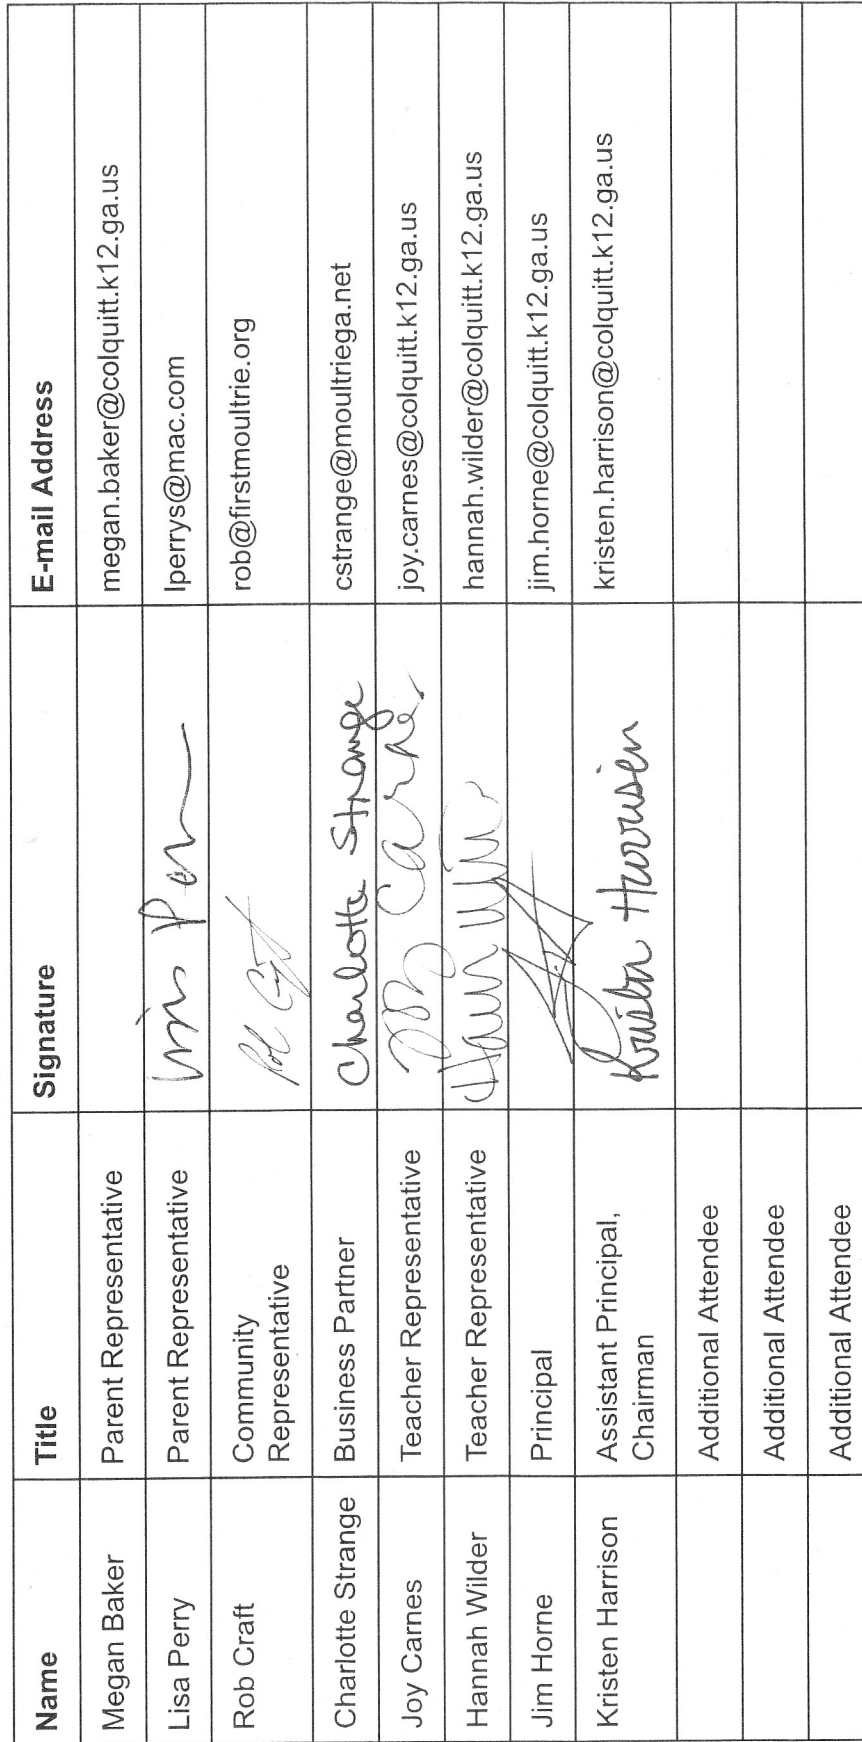 Name Title Signature E-mail Address
Megan Baker Parent Representative megan.baker@colquitt.k12.ga.us
Lisa Perry Parent Representative lperrys@mac.com
Rob Craft Community
Representative rob@firstmoultrie.org
Charlotte Strange Business Partner Charlotte Strange cstrange@moultriega.net
Joy Carnes Teacher Representative Joy Carnes joy.carnes@colquitt.k12.ga.us
Hannah Wilder Teacher Representative hannah.wilder@colquitt.k12.ga.us
Jim Horne Principal jim.horne@colquitt.k12.ga.us
Kristen Harrison Assistant Principal,
Chairman Kristen Harrison kristen.harrison@colquitt.k12.ga.us
Additional Attendee
Additional Attendee
Additional Attendee